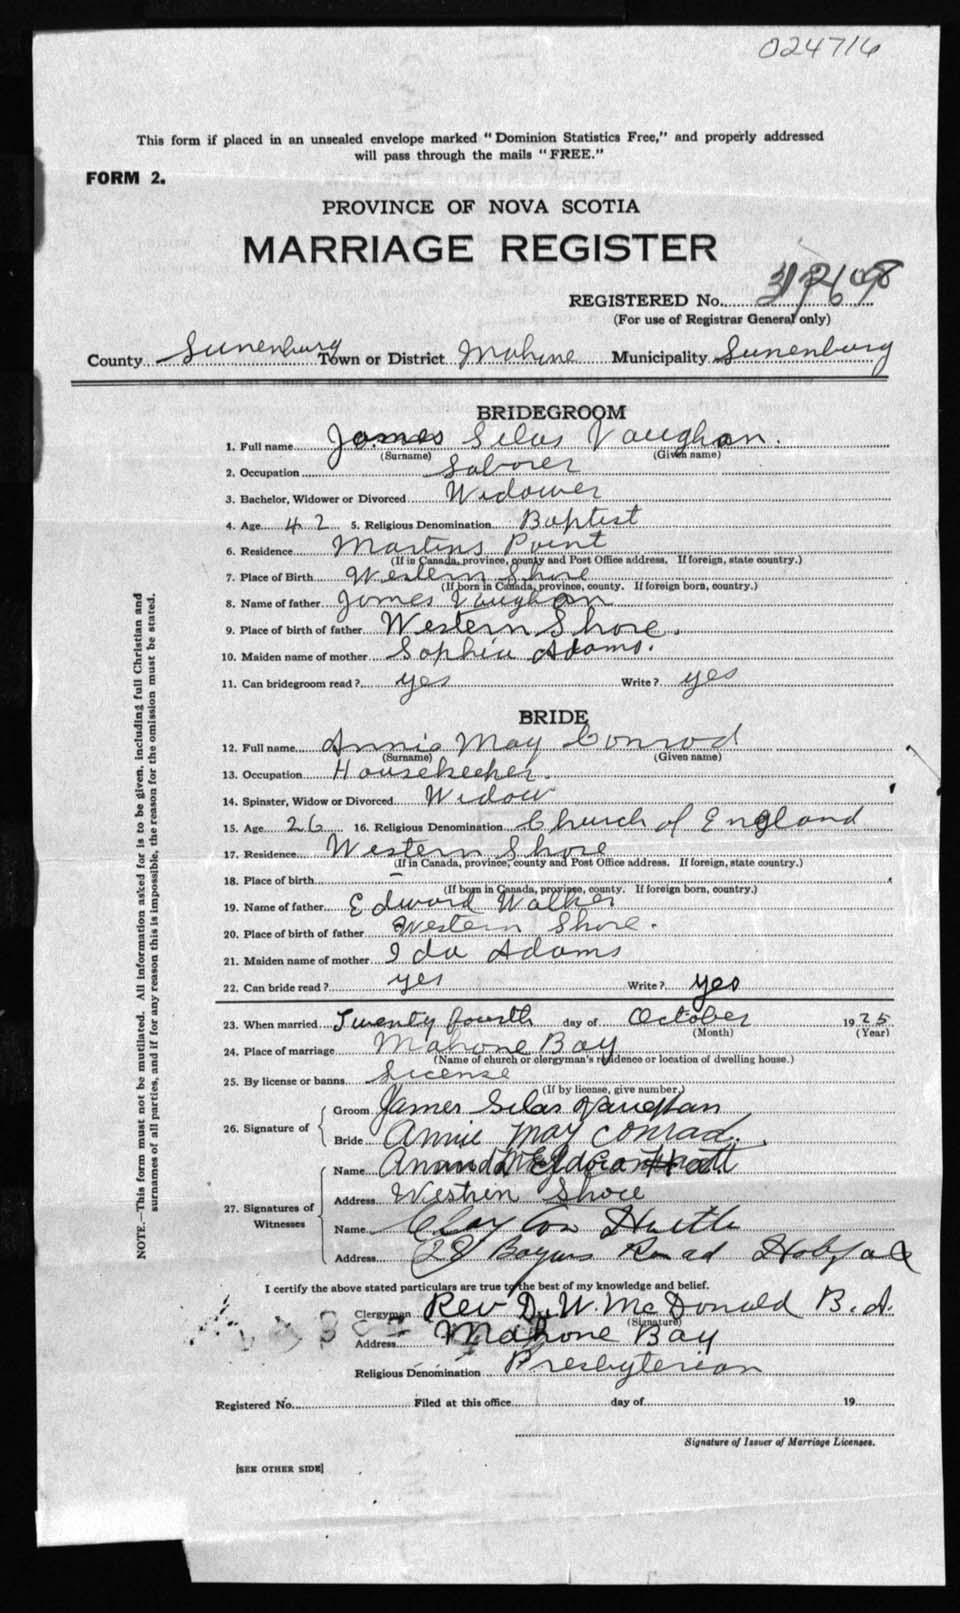 024716
This form if placed in an unsealed envelope marked "Dominion Statistics Free," and properly addressed
will pass through the mails "FREE."
FORM 2.
PROVINCE OF NOVA SCOTIA
MARRIAGE REGISTER
REGISTERED No.
(For use of Registrar General only)
County Lunenburg Town or District Mahone Municipality Lunenburg
BRIDEGROOM
1. Full name James Silas Vaughan.
(Surname) (Given name)
2. Occupation Laborer
3. Bachelor, Widower or Divorced Widower
4. Age 42 5. Religious Denomination Baptist
6. Residence Martins Point
(If in Canada, province, county and Post Office address. If foreign, state country.)
7. Place of Birth Western Shore
(If born in Canada, province, county. If foreign born, country.)
8. Name of father James Vaughan
9. Place of birth of father Western Shore.
10. Maiden name of mother Sophia Adams.
11. Can bridegroom read? yes Write? yes
BRIDE
12. Full name Annie May Conrad
(Surname) (Given name)
13. Occupation Housekeeper.
14. Spinster, Widow or Divorced Widow
15. Age 26 16. Religious Denomination Church of England
17. Residence Western Shore
(If in Canada, province, county and Post Office address. If foreign, state country.)
18. Place of birth
(If born in Canada, province, county. If foreign born, country.)
19. Name of father Edward Walker
20. Place of birth of father Western Shore.
21. Maiden name of mother Ida Adams
22. Can bride read? yes Write? yes
23. When married Twenty fourth day of October 1925
(Month) (Year)
24. Place of marriage Mahone Bay
(Name of church or clergyman's residence or location of dwelling house.)
25. By license or banns License
(If by license, give number.)
26. Signature of
Groom James Silas Vaughan
Bride Annie May Conrad.
27. Signatures of Witnesses
Name
Address Western Shore
Name Clayton
Address 28 Road
I certify the above stated particulars are true to the best of my knowledge and belief.
Clergyman Rev D. W. McDonald B.A.
(Signature)
Address Mahone Bay
Religious Denomination Presbyterian
Registered No. Filed at this office day of 19
Signature of Issuer of Marriage Licenses.
[SEE OTHER SIDE]
NOTE.—This form must not be mutilated. All information asked for is to be given, including full Christian and
surnames of all parties, and if for any reason this is impossible, the reason for the omission must be stated.